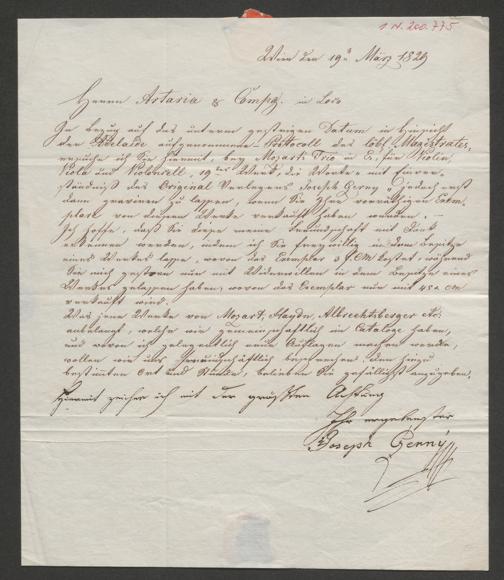 1 N. 200.775
Wien den 19n März 1829
Herrn Artaria & Compg. in Loco
In bezug auf das unterm gestrigen Datum in Hinsicht
der Adelaide aufgenommene Protocoll des löbl Magistrates,
ersuche ich Sie hiermit, bey Mozarts Trio in Es, für Violin,
Viola und Violoncell, 19tes Werk, die Worte: mit Einver-
ständniß des Original Verlegers Joseph Czerny
dann graviren zu lassen, wenn Sie Ihre vorräthigen Exem-
plare von diesem Werke verkauft haben werden. —
Ich hoffe, daß Sie diese meine Freundschaft mit Dank
erkennen werden, indem ich Sie freywillig in dem Besitze
eines Werkes lasse, wovon das Exemplar 3 f CM kostet, während
Sie mich gestern nur mit Widerwillen in dem Besitze eines
Werkes gelassen haben, wovon das Exemplar nur mit 45 x CM
verkauft wird.
Was jene Werke von Mozart, Haydn, Albrechtsberger etc:
anbelangt, welche wir gemeinschaftlich in Cataloge haben,
und wovon ich gelegentlich neue Auflagen machen werde,
wollen wir uns freundschaftlich besprechen. Den hiezu
bestimmten Ort und Stunde, belieben Sie gefälligst anzugeben.
Hiermit zeichne ich mit der größten Achtung
Ihr ergebenster
Joseph Czerny